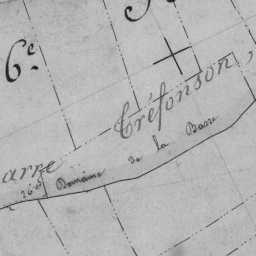 6e.
Tréfonson,
arre
Domaine de la Basse